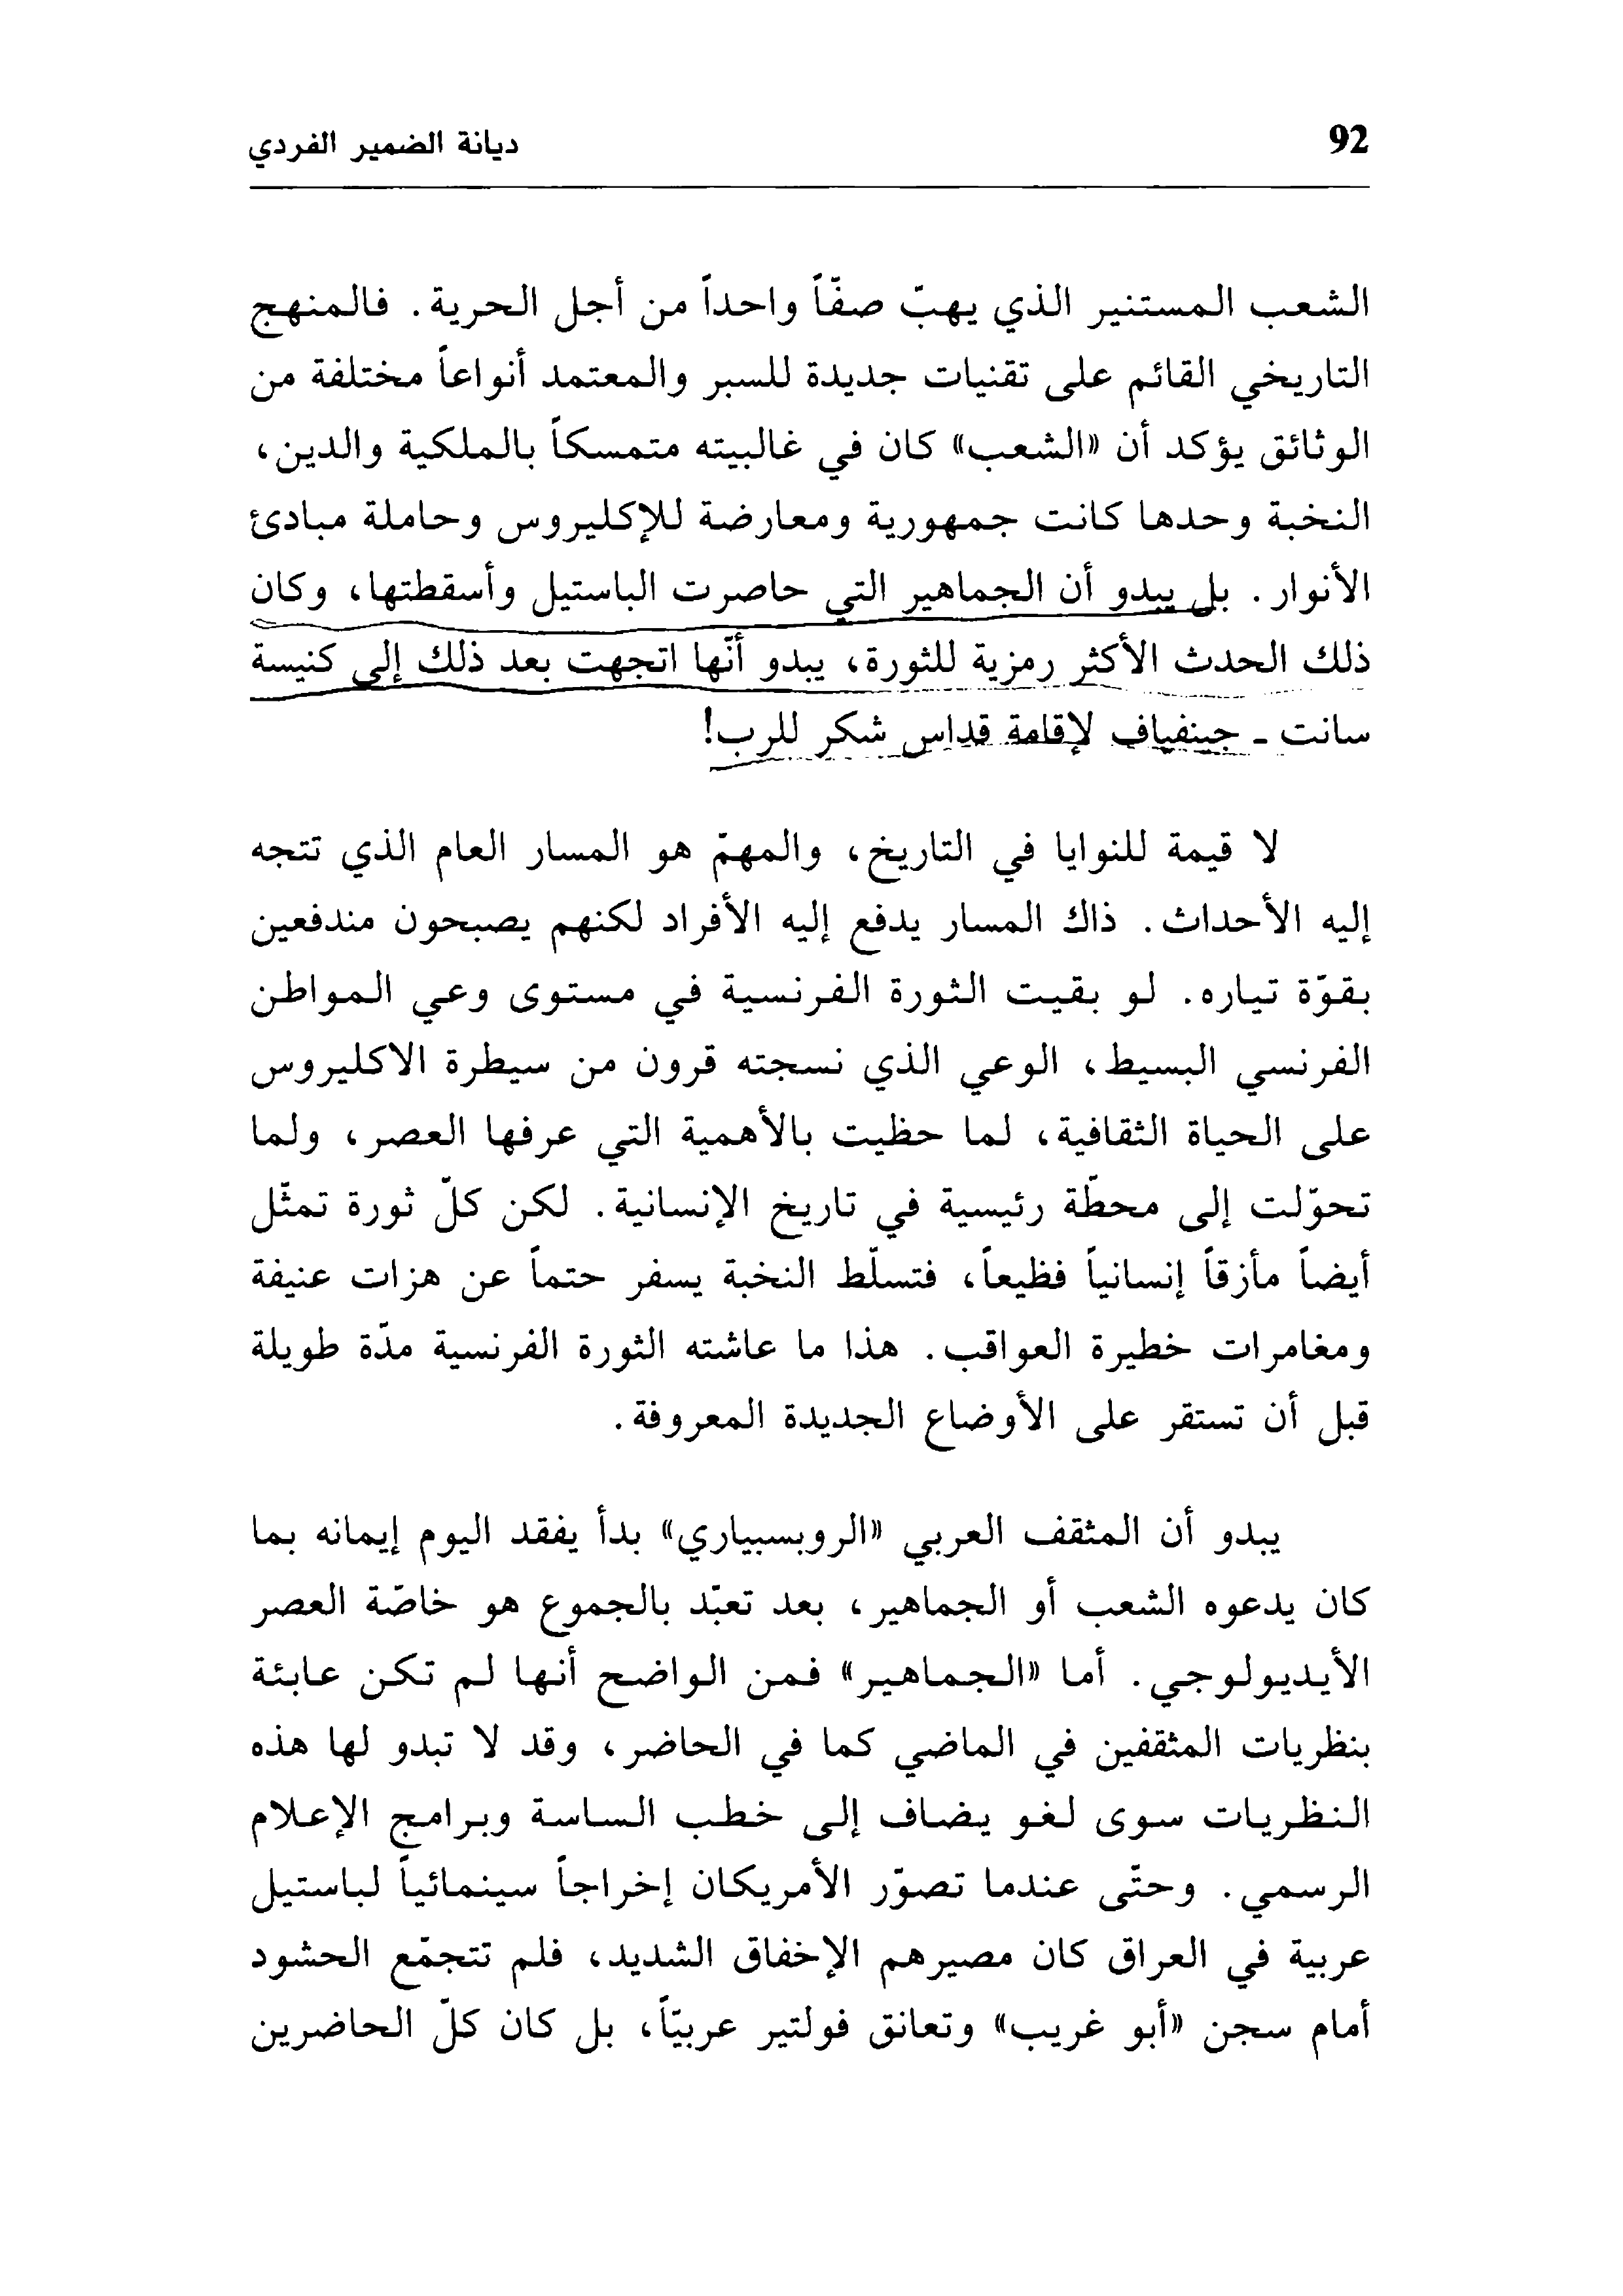 92
ديانة الضمير الفردي
الشعب المستنير الذي يهبّ صفّاً واحداً من أجل الحرية. فالمنهج
التاريخي القائم على تقنيات جديدة للسبر والمعتمد أنواعاً مختلفة من
الوثائق يؤكد أن «الشعب» كان في غالبيته متمسكاً بالملكية والدين،
النخبة وحدها كانت جمهورية ومعارضة للإكليروس وحاملة مبادئ
الأنوار. بل يبدو أن الجماهير التي حاصرت الباستيل وأسقطتها، وكان
ذلك الحدث الأكثر رمزية للثورة، يبدو أنّها اتجهت بعد ذلك إلى كنيسة
سانت ـ جينفياف لإقامة قداس شكر للرب!
لا قيمة للنوايا في التاريخ، والمهمّ هو المسار العام الذي تتجه
إليه الأحداث. ذاك المسار يدفع إليه الأفراد لكنهم يصبحون مندفعين
بقوّة تياره. لو بقيت الثورة الفرنسية في مستوى وعي المواطن
الفرنسي البسيط، الوعي الذي نسجته قرون من سيطرة الاكليروس
على الحياة الثقافية، لما حظيت بالأهمية التي عرفها العصر، ولما
تحوّلت إلى محطّة رئيسية في تاريخ الإنسانية. لكن كلّ ثورة تمثّل
أيضاً مأزقاً إنسانياً فظيعاً، فتسلّط النخبة يسفر حتماً عن هزات عنيفة
ومغامرات خطيرة العواقب. هذا ما عاشته الثورة الفرنسية مدّة طويلة
قبل أن تستقر على الأوضاع الجديدة المعروفة.
يبدو أن المثقف العربي «الروبسبياري» بدأ يفقد اليوم إيمانه بما
كان يدعوه الشعب أو الجماهير، بعد تعبّد بالجموع هو خاصّة العصر
الأيديولوجي. أما «الجماهير» فمن الواضح أنها لم تكن عابئة
بنظريات المثقفين في الماضي كما في الحاضر، وقد لا تبدو لها هذه
النظريات سوى لغو يضاف إلى خطب الساسة وبرامج الإعلام
الرسمي. وحتّى عندما تصوّر الأمريكان إخراجاً سينمائياً لباستيل
عربية في العراق كان مصيرهم الإخفاق الشديد، فلم تتجمّع الحشود
أمام سجن «أبو غريب» وتعانق فولتير عربيّاً، بل كان كلّ الحاضرين